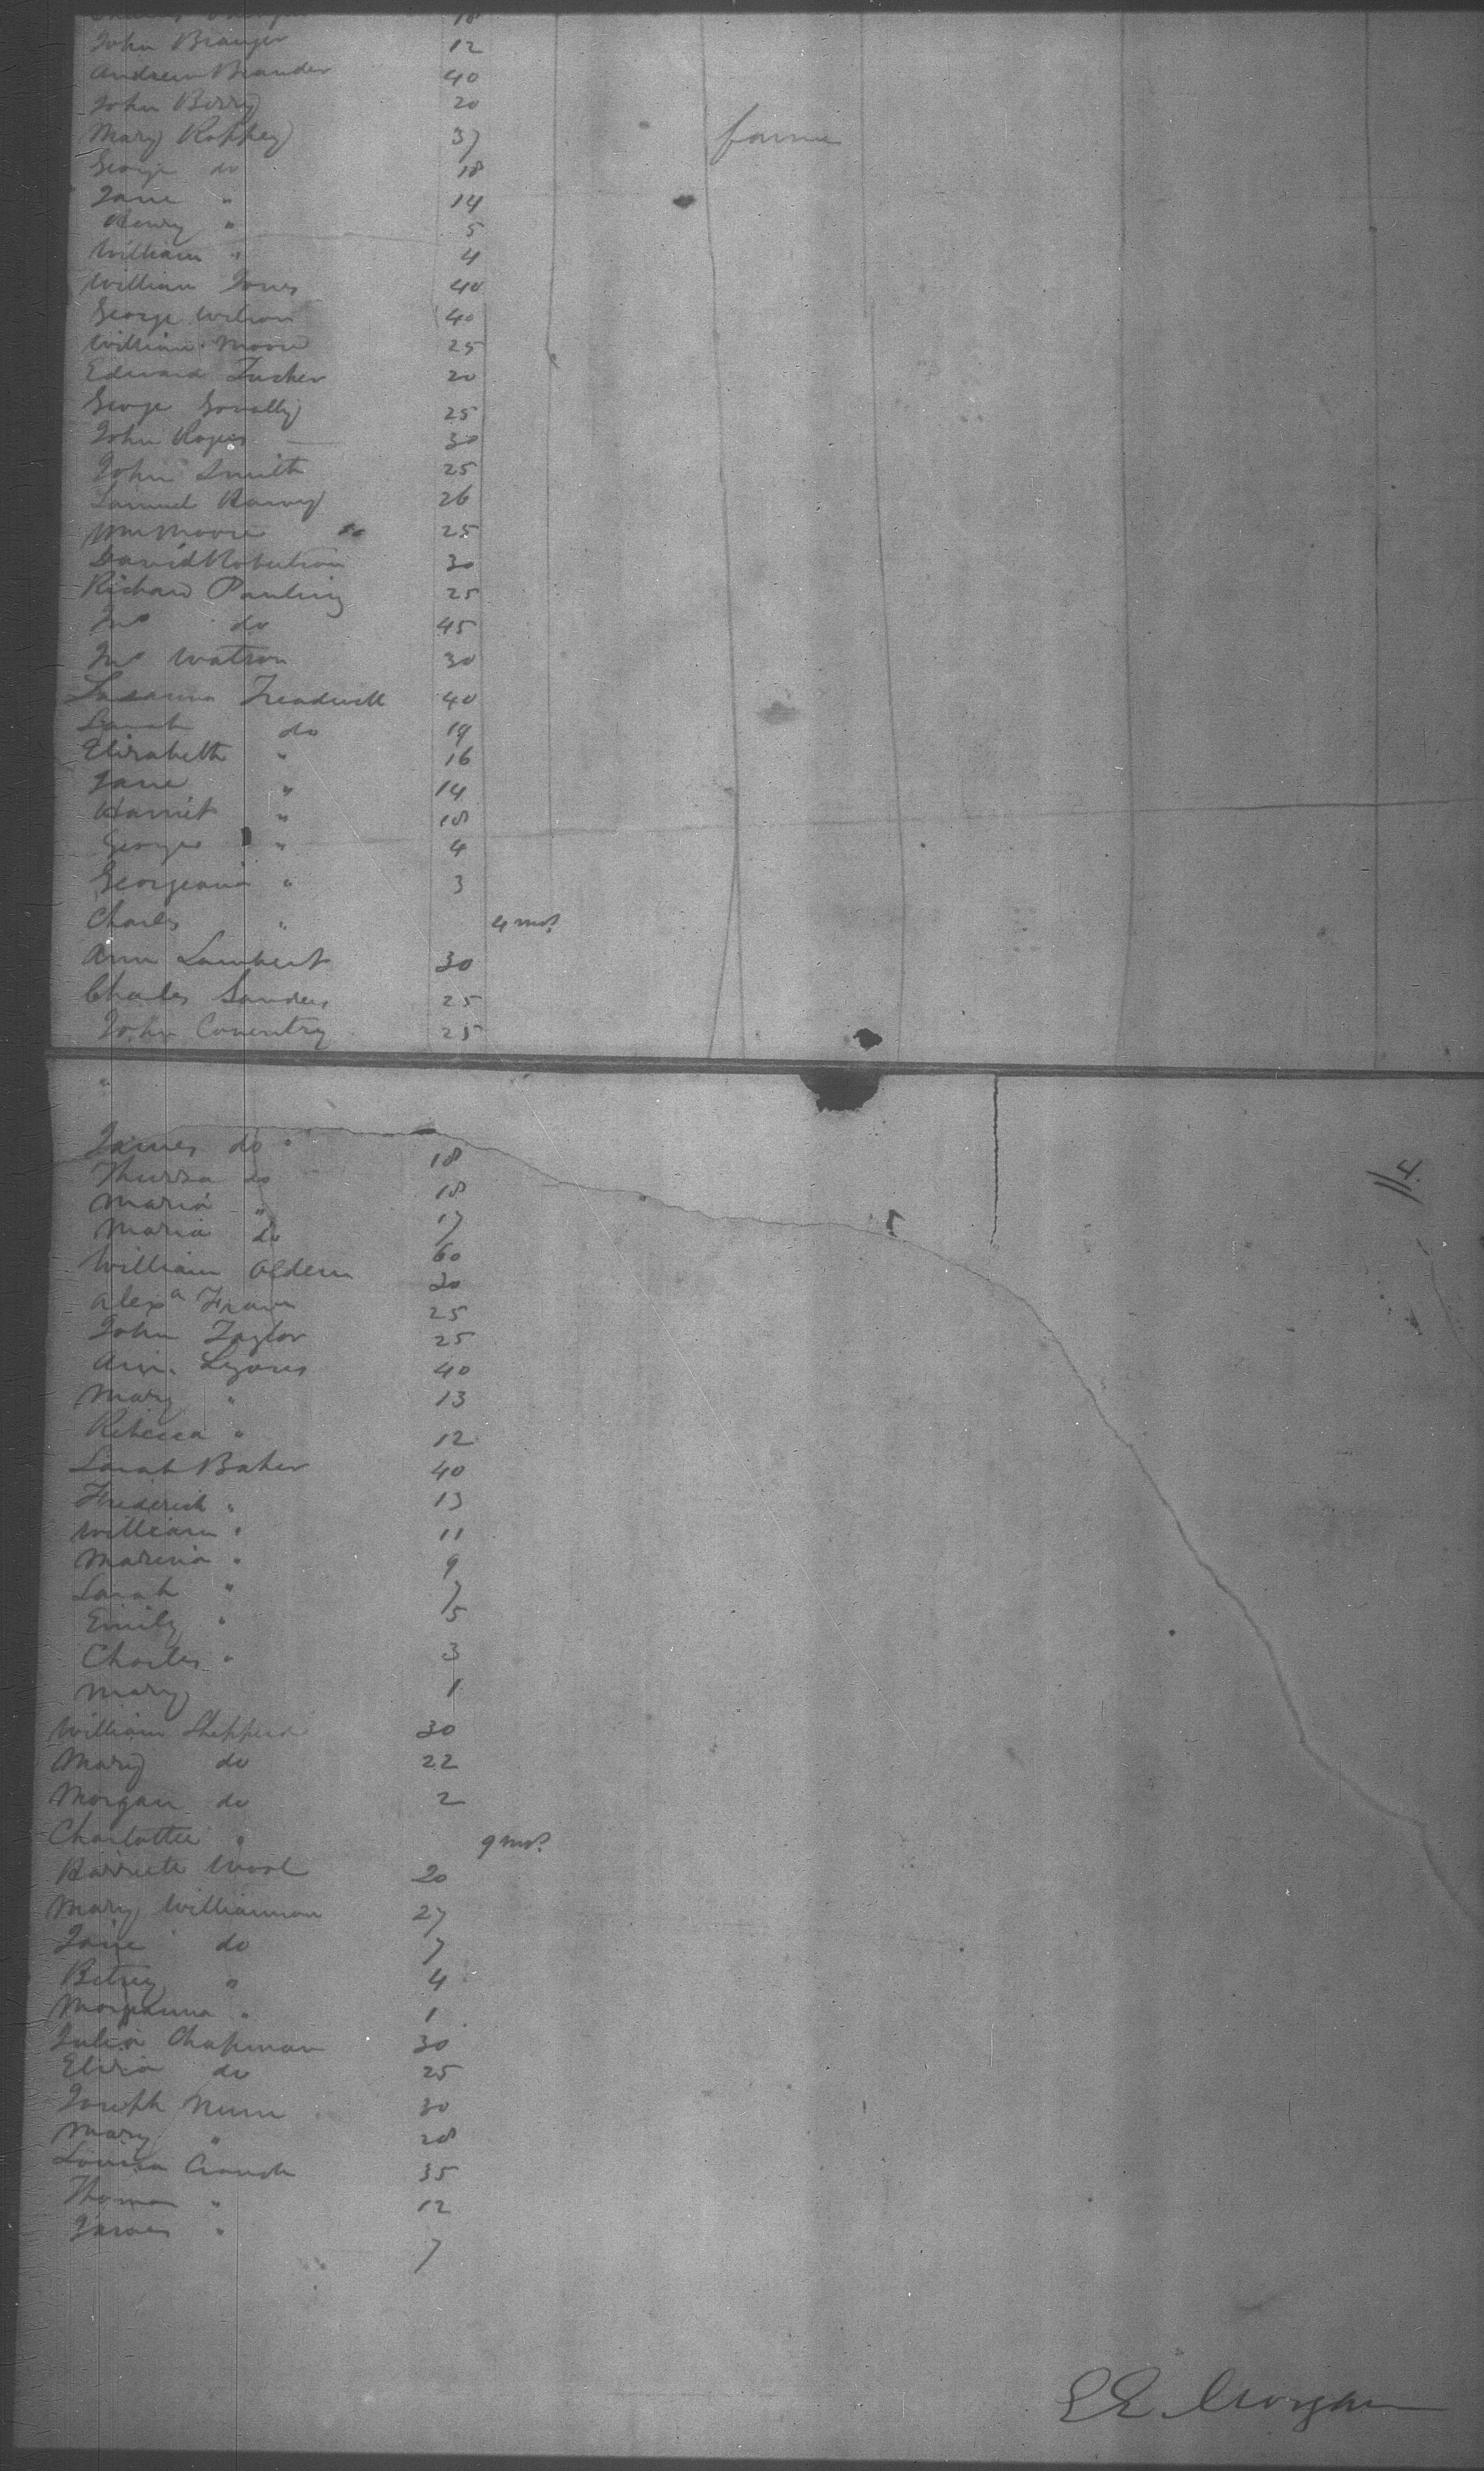 18
John Branger 12
Andrew Brander 40
John Berry 20
Mary Rophey 37 farmer
George do 18
Jane " 14
Henry " 5
William " 4
William Jones 40
George Wilson 40
William Moore 25
Edward Tucker 20
George 25
John Rogers 30
John Smith 25
Samuel Harvey 26
Wm Moore 25
David Robertson 30
Richard Pauling 25
Jno do 45
Jno Watson 30
Susanna Treadwell 40
Sarah do 19
Elizabeth " 16
Jane " 14
Harriet " 18
George " 4
Georgeana " 3
Charles " 4 mos
Ann Lambert 30
Charles Sanders 25
John Coventry 25
"
James do 18
Thurza do 18
Maria " 17
Maria do 60
William Aldern 30
Alexa 25
John Taylor 25
Ann Lyons 40
Mary " 13
Rebecca " 12
Sarah Baker 40
Frederick " 13
William " 11
Marina " 9
Sarah " 7
Emily " 5
Charles " 3
Mary 1
William Shepperd 30
Mary do 22
Morgan do 2
Charlotte " 9 mos
Harriete Wool 20
Mary Williamson 27
Jane do 7
Betsey " 4
Morgianna " 1
Julia Chapman 30
Eliza do 25
Joseph Nunn 30
Mary " 28
Louisa Crouch 35
Thomas " 12
James " 7
114.
E E Morgan